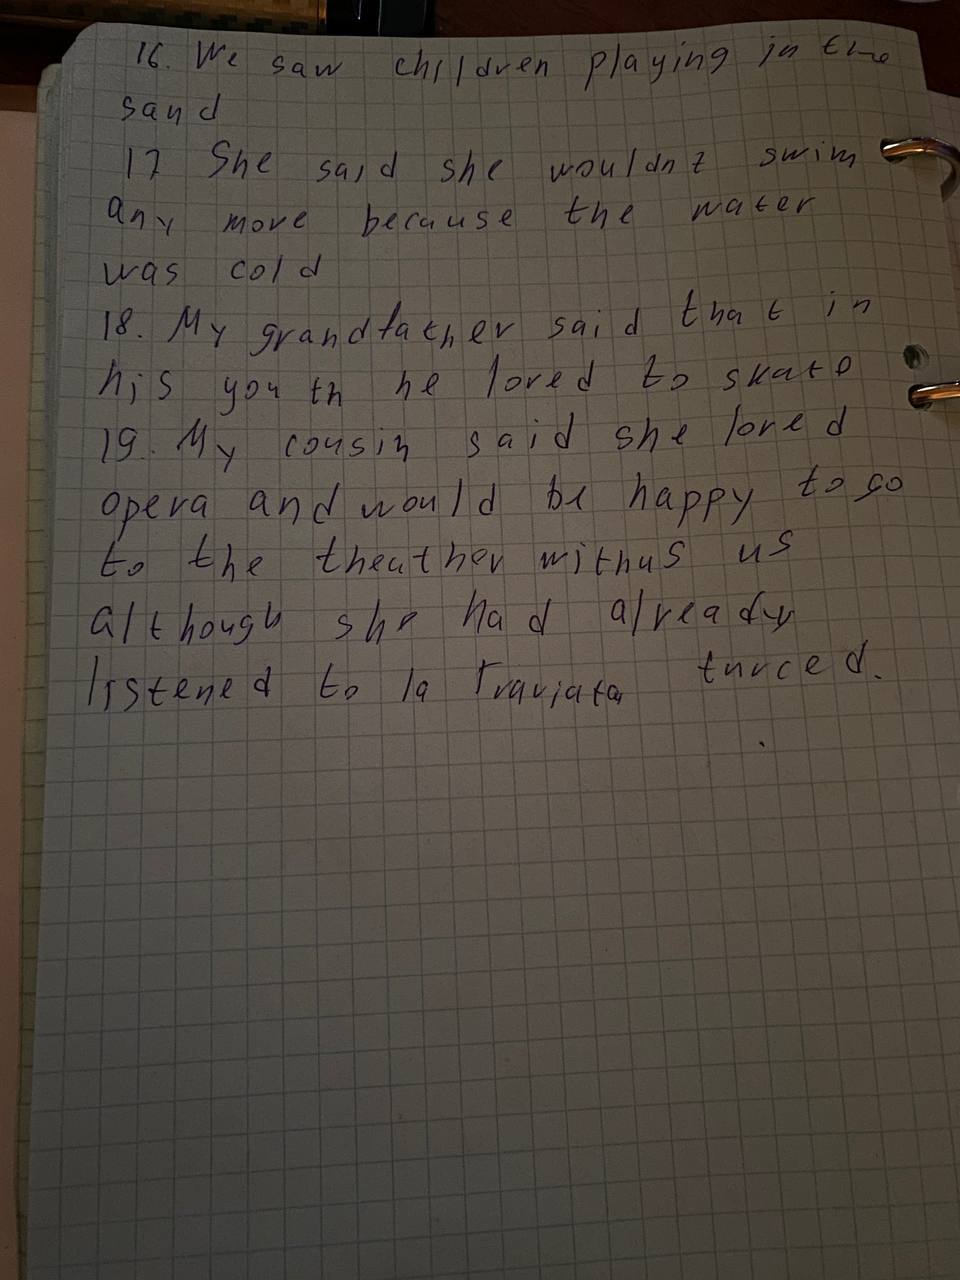 16. We saw children playing in the
sand
17 She said she wouldnt swim
any more because the water
was cold
18. My grandfather said that in
his youth he loved to skate
19. My cousin said she loved
opera and would be happy to go
to the theather withus us
although she had already
listened to la Traviata